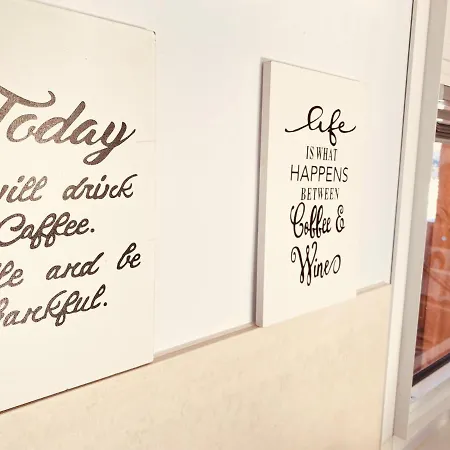 Today
will drink
Coffee.
and be
thankful.
life
IS WHAT
HAPPENS
BETWEEN
Coffee &
Wine